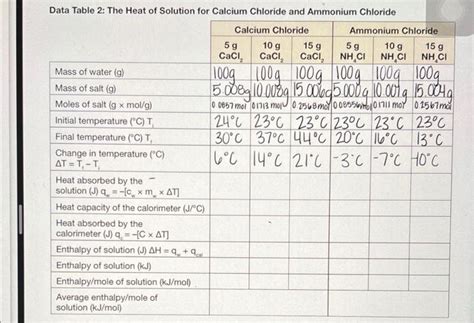 Data Table 2: The Heat of Solution for Calcium Chloride and Ammonium Chloride
Calcium Chloride Ammonium Chloride
5 g CaCl₂ 10 g CaCl₂ 15 g CaCl₂ 5 g NH₄Cl 10 g NH₄Cl 15 g NH₄Cl
Mass of water (g) 100g 100g 100g 100g 100g 100g
Mass of salt (g) 5.008g 10.008g 15.006g 5.000g 10.001g 15.004g
Moles of salt (g × mol/g) 0.0857mol 0.1713mol 0.2568mol 0.08556mol 0.1711mol 0.2567mol
Initial temperature (°C) Tᵢ 24°C 23°C 23°C 23°C 23°C 23°C
Final temperature (°C) T 30°C 37°C 44°C 20°C 16°C 13°C
Change in temperature (°C) 6°C 14°C 21°C -3°C -7°C -10°C
ΔT = T - Tᵢ
Heat absorbed by the
solution (J) q = -[c × m × ΔT]
Heat capacity of the calorimeter (J/°C)
Heat absorbed by the
calorimeter (J) q = -[C × ΔT]
Enthalpy of solution (J) ΔH = q + q
Enthalpy of solution (kJ)
Enthalpy/mole of solution (kJ/mol)
Average enthalpy/mole of
solution (kJ/mol)